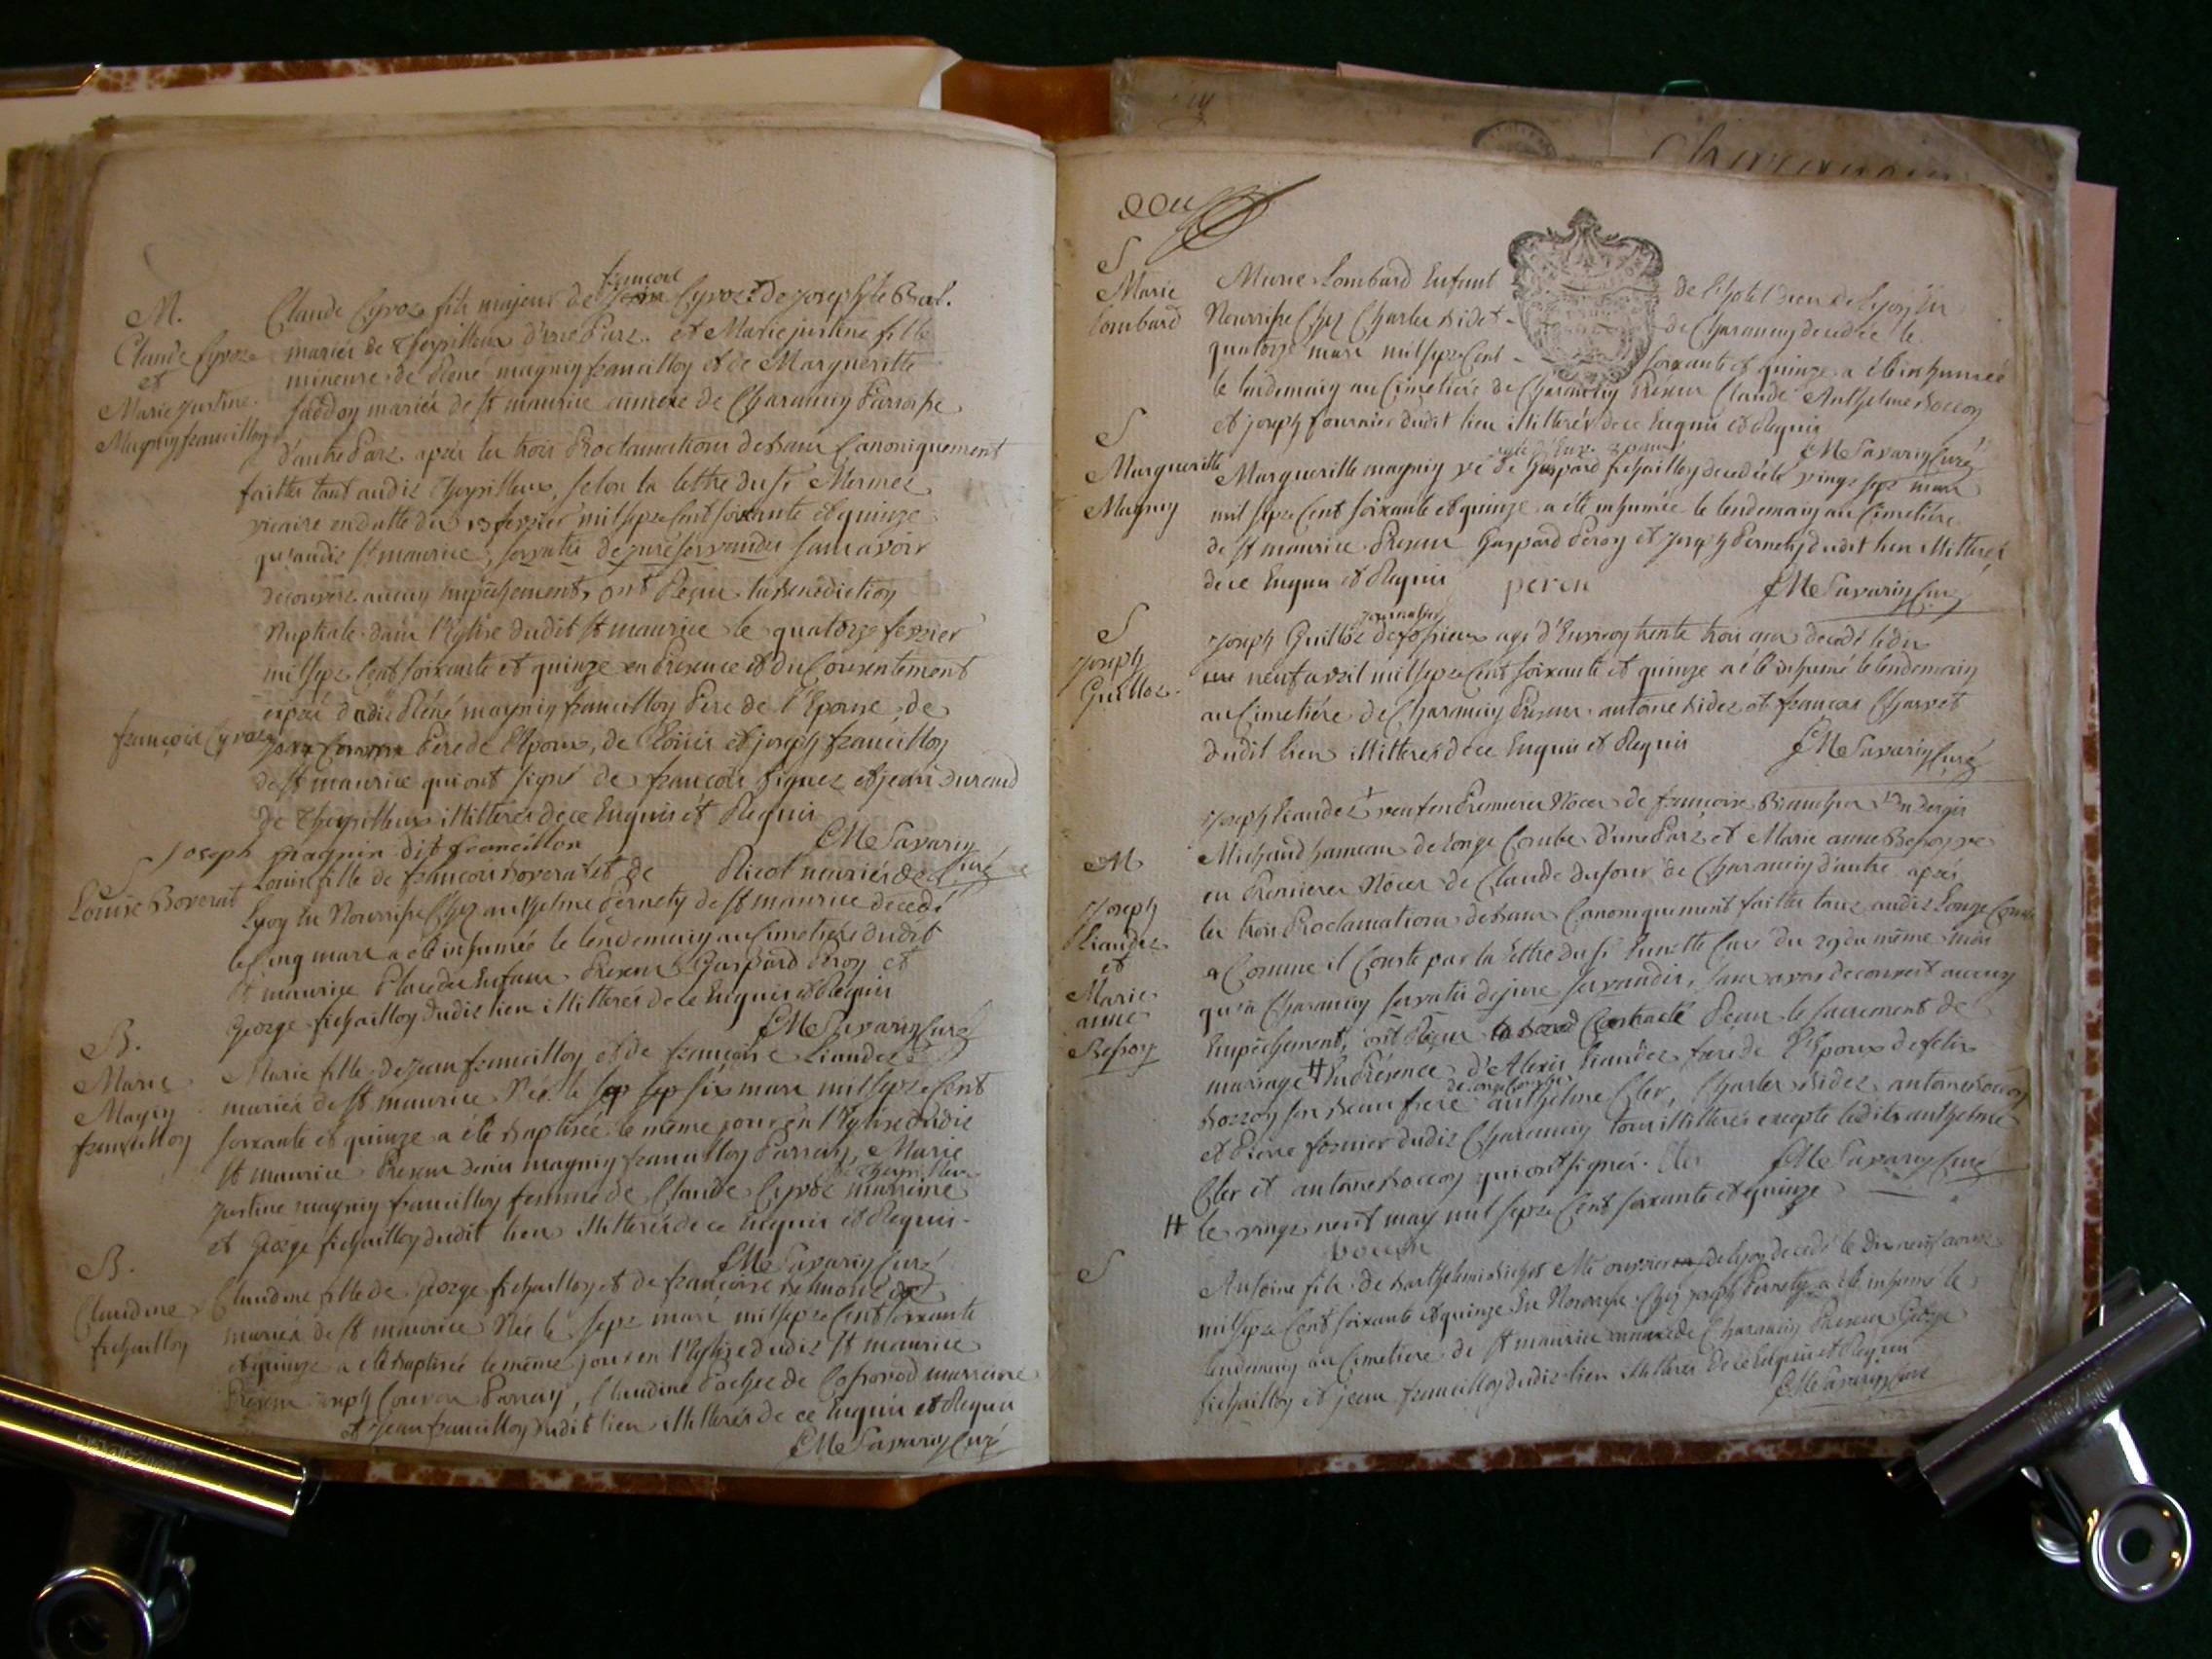 françois
M.
Claude Cyvoz
et
Marie justine
Magnin francillon
Claude Cyvoz fils majeur de Cyvoz & de joseph le Bral.
mariés de Cheysilleux d'une Part. et Marie justine fille
mineure de Réné magnin francillon et de Margueritte
faddoy mariés de st maurice annexe de Charancin Parroisse
d'autre Part. après les trois Proclamations de bans Canoniquement
faittes tant audit Cheysilleux, selon la lettre du sr Mermet
vicaire en datte du 13 fevrier mil sept cent soixante et quinze
qu'audit st maurice, servatis de jure servandis sans avoir
decouvert aucun empêchement, ont Reçu la Bénédiction
Nuptiale dans l'Eglise dudit st maurice le quatorze fevrier
mil sept Cent soixante et quinze en Presence et du Consentement
exprès dudit Réné magnin francillon Pere de l'Epouse, de
françois Cyvoz
Pere de l'Epoux, de Clovis et joseph francillon
de st maurice qui ont signé de françois Piquet et jean durand
de Cheysilleux illitterés de ce Enquis et Requis
joseph magnin dit francillon
CM Savarin Curé
S
Louise Boverat
Louise fille de françois Boverat et de Ricot mariés de
Lyon en Nourrisse Chez anthelme Pernety de st maurice decedé
le cinq mars a eté inhumée le lendemain au Cimetiére dudit
st maurice Place des Enfans Presens Gaspard Peroy et
George fichaillon dudit lieu illitterés de ce Enquis et Requis
CM Savarin Curé
B.
Marie
Magnin
francillon
Marie fille de jean francillon et de françoise Liaudet
mariés de st maurice Née le six mars mil sept Cent
soixante et quinze a été baptisée le même jour en l'Eglise dudit
st maurice Presens denis magnin francillon Parrain, Marie
justine magnin francillon femme de Claude Cyvoz marreine
et George fichaillon dudit lieu illitterés de ce Enquis et Requis.
CM Savarin Curé
B.
Claudine
fichaillon
Claudine fille de George fichaillon et de françoise
mariés de st maurice Née le sept mars mil sept Cent soixante
et quinze a été baptisée le même jour en l'Eglise dudit st maurice
Presens joseph Parrain, Claudine Pochet de marreine
et jean francillon dudit lieu illitterés de ce Enquis et Requis
CM Savarin Curé
S
Marie
Lombard
Marie Lombard Enfant de l'hotel dieu de Lyon en
Nourrisse Chez Charles Bidet de Charancin decedée le
quatorze mars mil sept Cent soixante et quinze a été inhumée
le lendemain au Cimetiére de Charancin Présens Claude Anthelme Boccon
et joseph fournier dudit lieu illitterés de ce Enquis et Requis
CM Savarin Curé
S
Margueritte
Magnin
Margueritte magnin ve de Gaspard fichaillon decedée le vingt sept mars
mil sept Cent soixante et quinze a été inhumée le lendemain au Cimetiére
de st maurice Presens Gaspard Peroy et joseph Pernety dudit lieu illitterés
de ce Enquis et Requis
peren
CM Savarin Curé
S
Joseph
Guilloz
journalier
Joseph Guilloz de fosieux agé d'Environ trente trois ans decedé le dix
neuf avril mil sept Cent soixante et quinze a été inhumé le lendemain
au Cimetiére de Charancin Presens antoine Bidet et françois Charvet
dudit lieu illitterés de ce Enquis et Requis
CM Savarin Curé
M
Joseph
Liaudet
et
Marie
anne
Besson
Joseph Liaudet veuf en Premieres Noces de françoise
Michaud hameau de Longe Combe d'une Part et Marie anne Besson ve
en Premieres Noces de Claude dufour de Charancin d'autre après
les trois Proclamations de bans Canoniquement faittes tant audit Longe Combe
Comme il Conste par la Lettre du sr Curé du 29 du même mois
qu'à Charancin servatis de jure servandis, sans avoir decouvert aucun
Empêchement, ont Contracté Reçu le sacrement de
mariage # En Présence d'Alexis Liaudet frere de l'Epoux de felix
son Beau frere anthelme Cler, Charles Bidet, antoine Boccon
et Pierre fornier dudit Charancin tous illitterés excepté lesdits anthelme
Cler et antoine Boccon qui ont signés. Cler CM Savarin Curé
# le vingt neuf may mil sept Cent soixante et quinze
boccon
S
Antoine fils de barthelemi Me ouvrier de Lyon decedé le dix neuf
mil sept Cent soixante et quinze En Nourrisse Chez joseph Pernety a été inhumé le
lendemain au Cimetiére de st maurice annexe de Charancin Presens George
fichaillon et jean francillon dudit lieu illitterés de ce Enquis et Requis
CM Savarin Curé